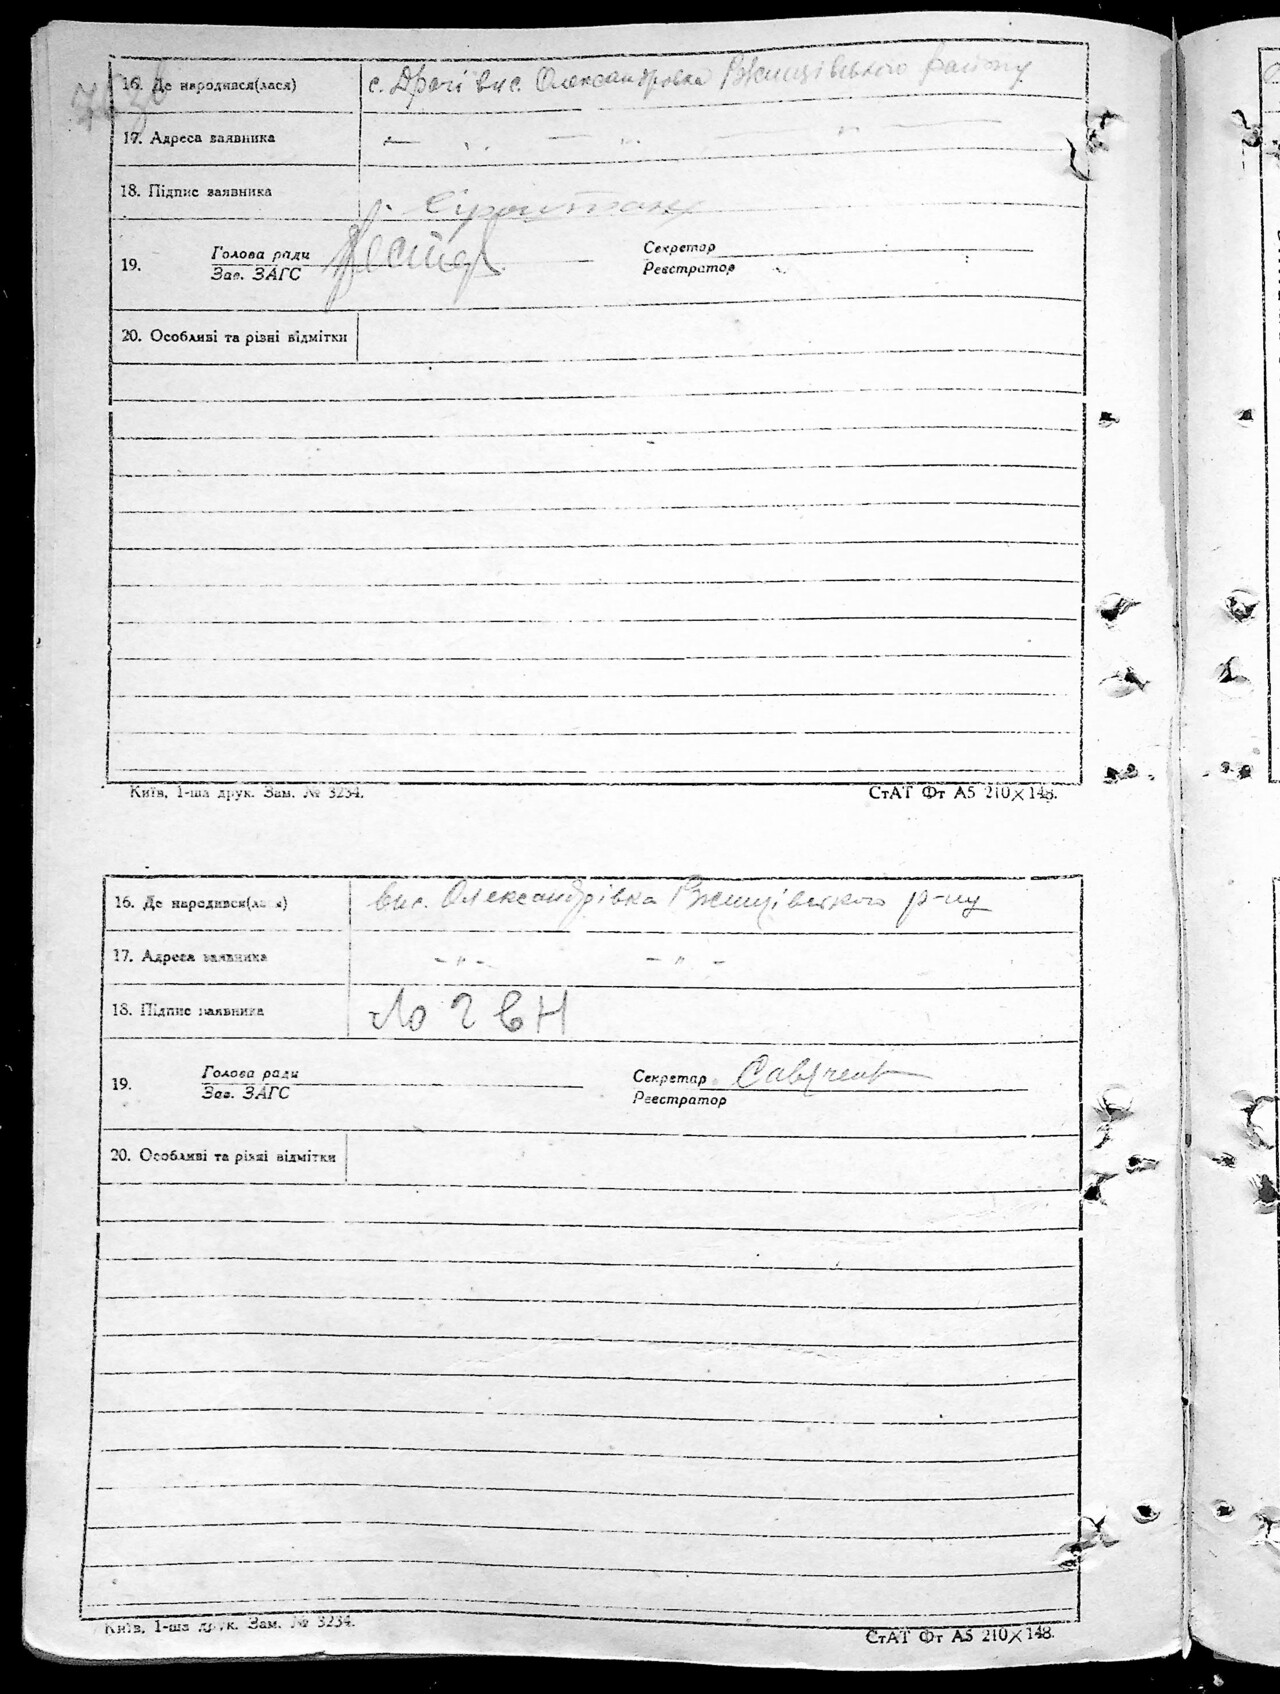 16. Де народився(лася) с. Драчі вис. Олександровка Ржищівського району
17. Адреса заявника — „ — „ — „ —
18. Підпис заявника
19. Голова ради Секретар
Зав. ЗАГС Реєстратор
20. Особливі та різні відмітки
Київ, 1-ша друк. Зам. № 3234. СтАТ Фт А5 210×148.
16. Де народився(лася) вис. Олександрівка Ржищівського р-ну
17. Адреса заявника - „ - - „ -
18. Підпис заявника
19. Голова ради Секретар
Зав. ЗАГС Реєстратор
20. Особливі та різні відмітки
Київ, 1-ша друк. Зам. № 3234. СтАТ Фт А5 210×148.